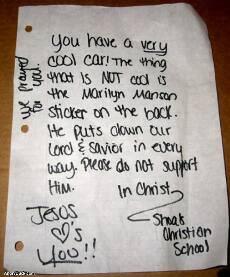 You have a very
cool car! The thing
that is NOT cool is
the Marilyn Manson
sticker on the back.
He puts down our
Lord & Savior in every
way. Please do not support
Him.
In Christ,
Shoals
Christian
School
JESUS
♡'s
YOU!!
We prayed
for you.